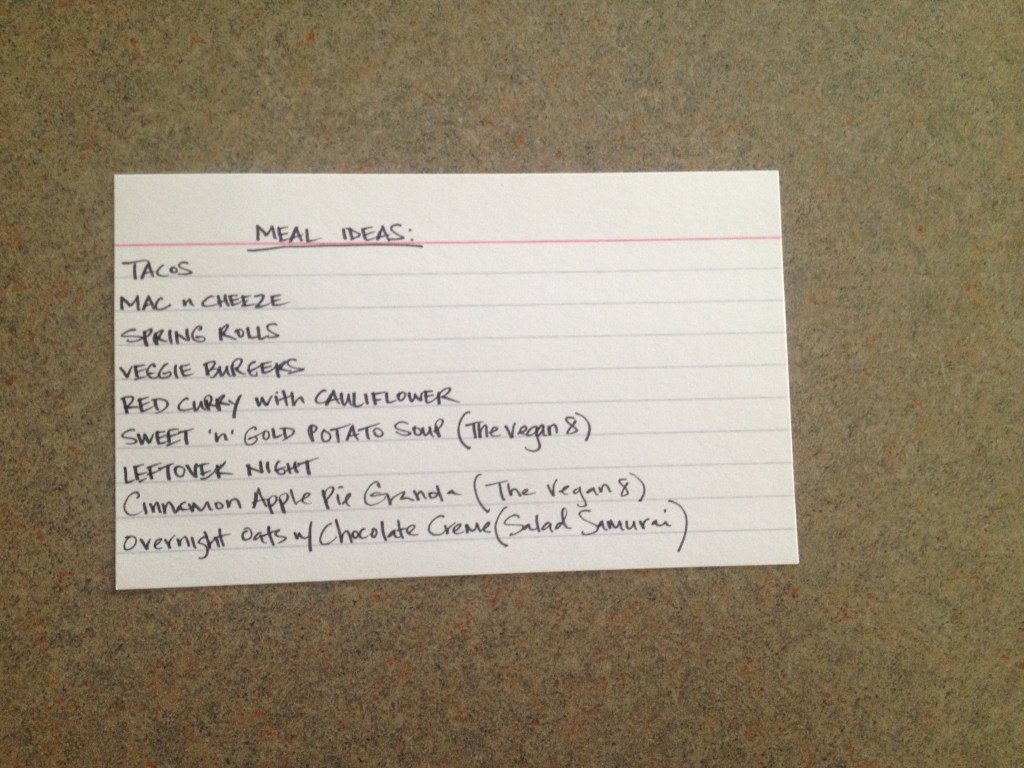 MEAL IDEAS:
TACOS
MAC n CHEEZE
SPRING ROLLS
VEGGIE BURGERS
RED CURRY with CAULIFLOWER
SWEET 'n' GOLD POTATO SOUP (The Vegan 8)
LEFTOVER NIGHT
Cinnamon Apple Pie Granola (The Vegan 8)
Overnight Oats w/ Chocolate Creme (Salad Samurai)